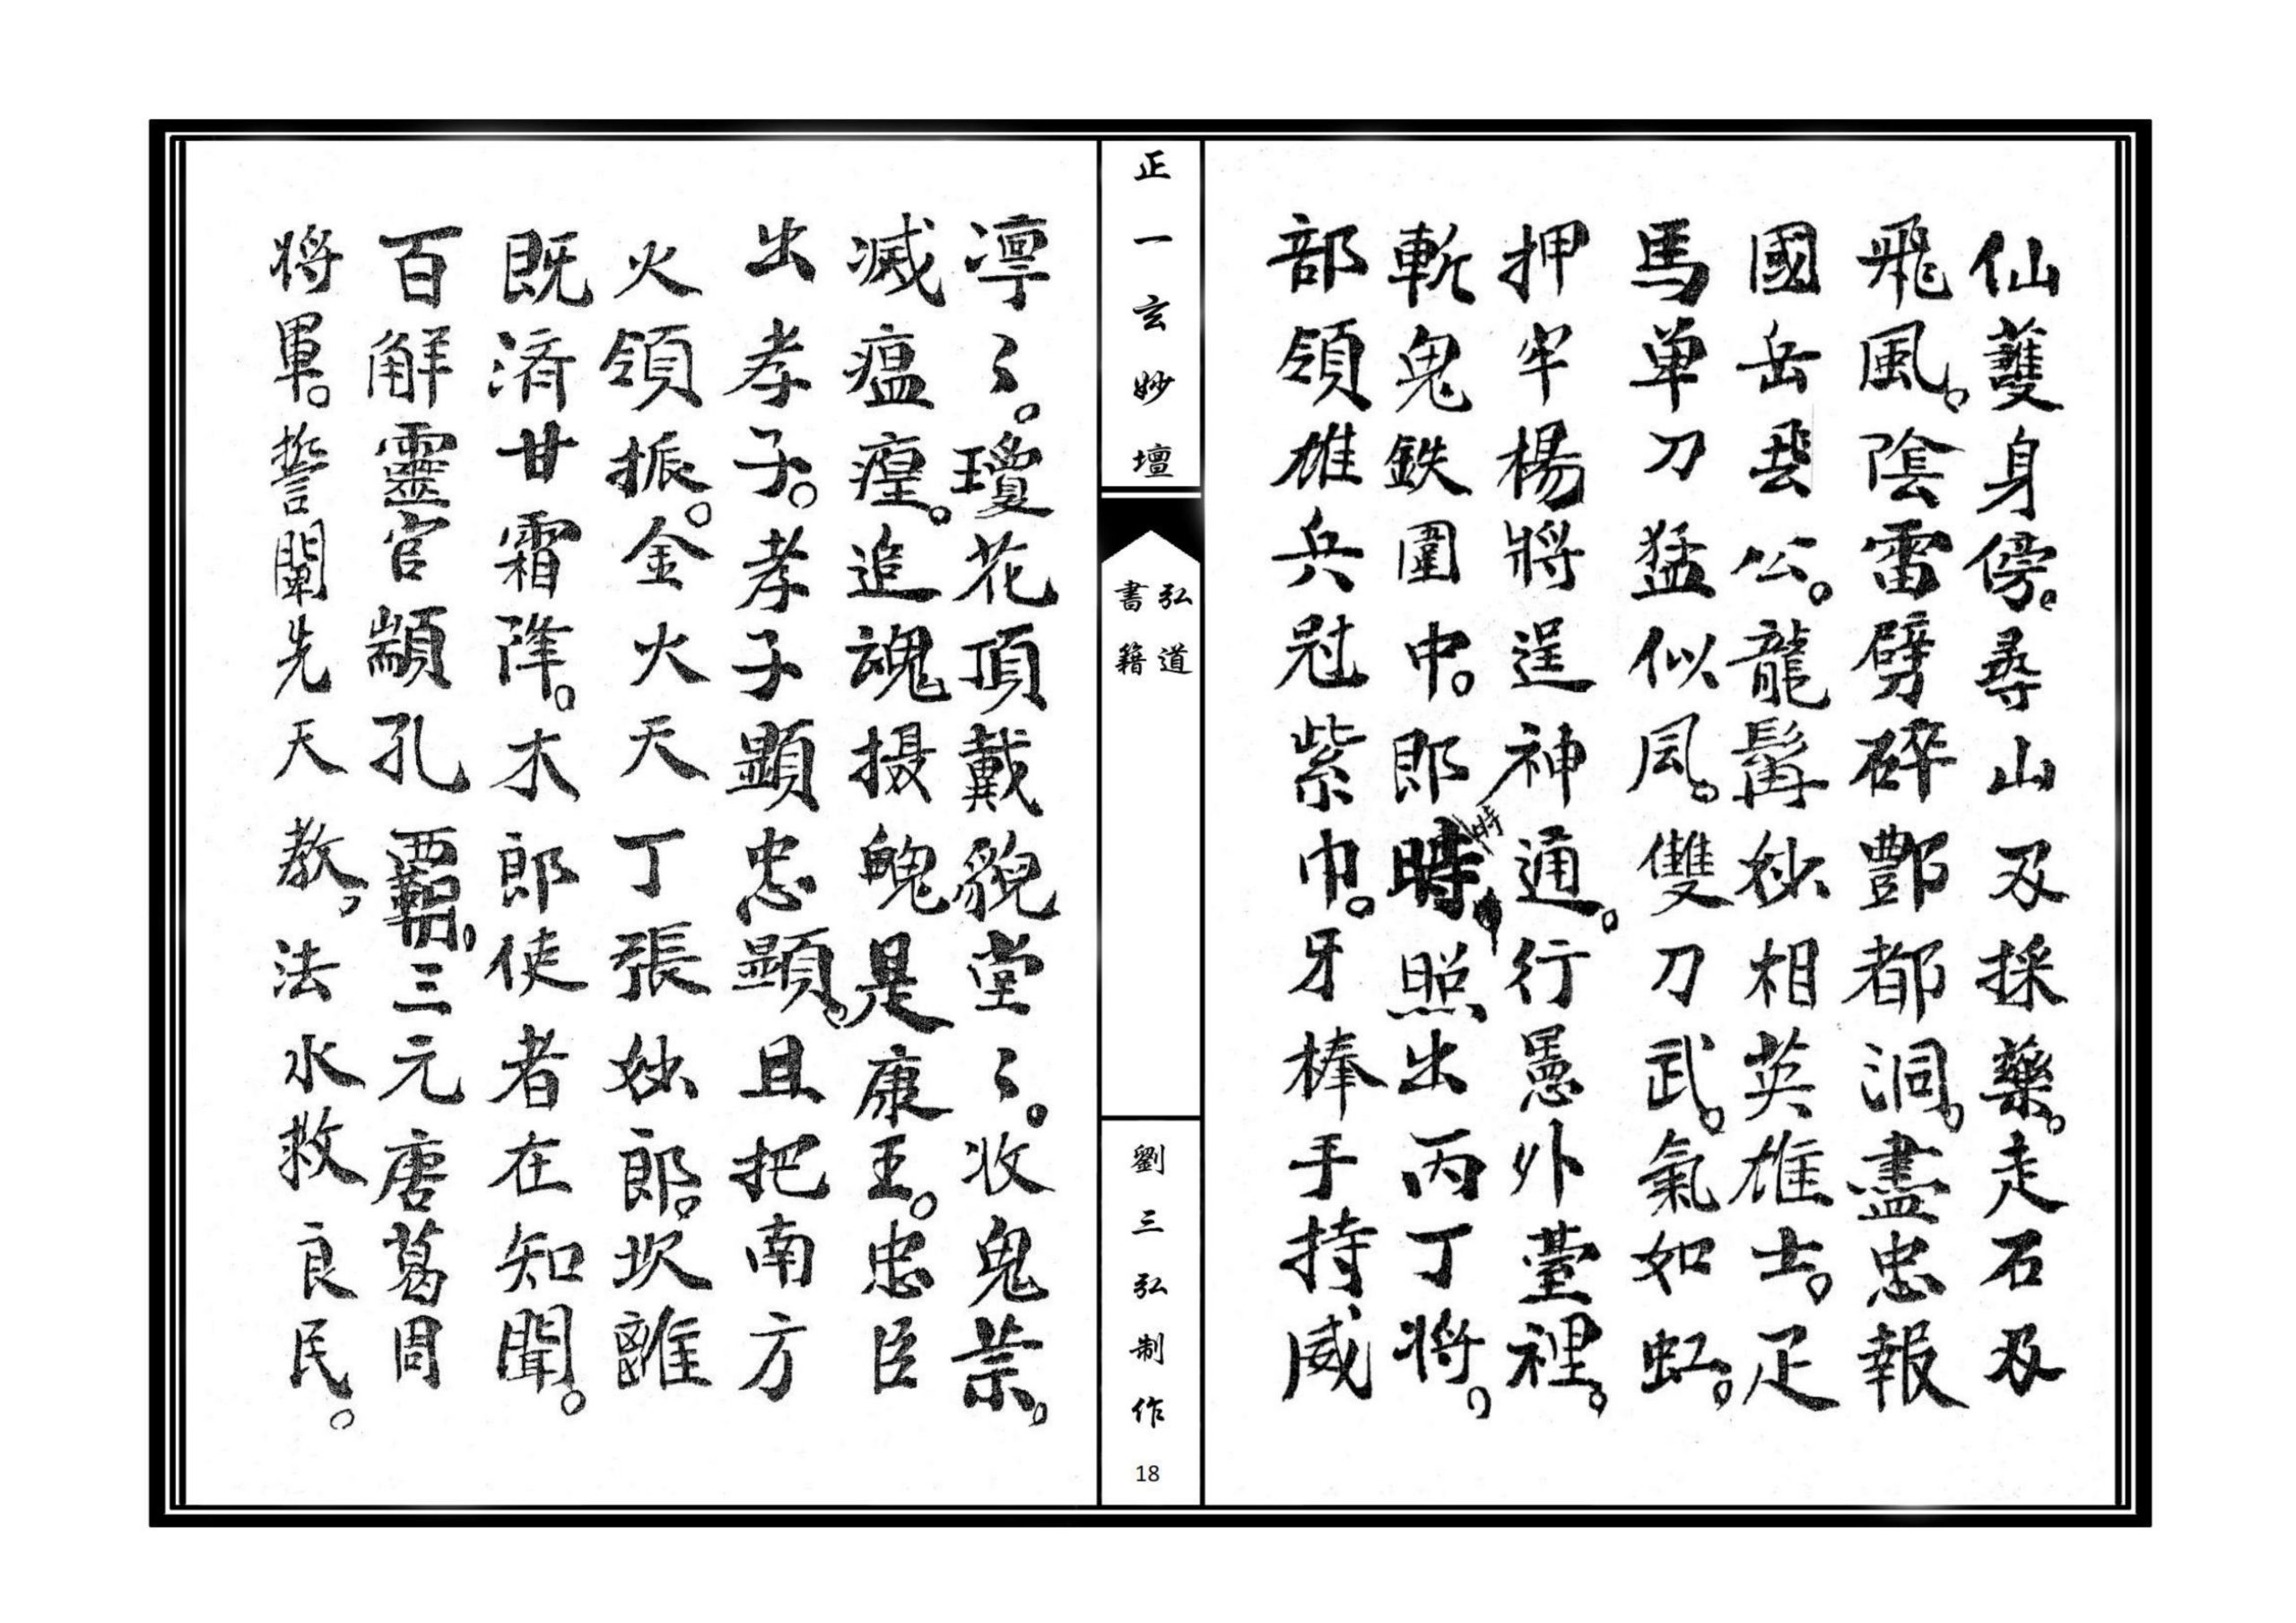 仙護身傍。尋山及採藥。走石及
飛風。陰雷劈碎酆都洞。盡忠報
國岳飛公。龍髯妙相英雄士。足
馬单刀猛似風。雙刀武。氣如虹。
押牢楊將逞神通。行愚外臺裡。
斬鬼鉄圍中。郎時照出丙丁將。
時
部領雄兵冠紫巾。牙棒手持威
正一玄妙壇
弘道
書籍
劉三弘制作
18
凛〻。瓊花頂戴貌堂〻。收鬼祟。
滅瘟瘟。追魂摄魄是康王。忠臣
出孝子。孝子顕忠顕。且把南方
火領振。金火天丁張妙郎。坎離
既済甘霜降。木郎使者在知聞。
百解靈官顓孔覇。三元唐葛周
将軍。誓闡先天教，法水救良民。